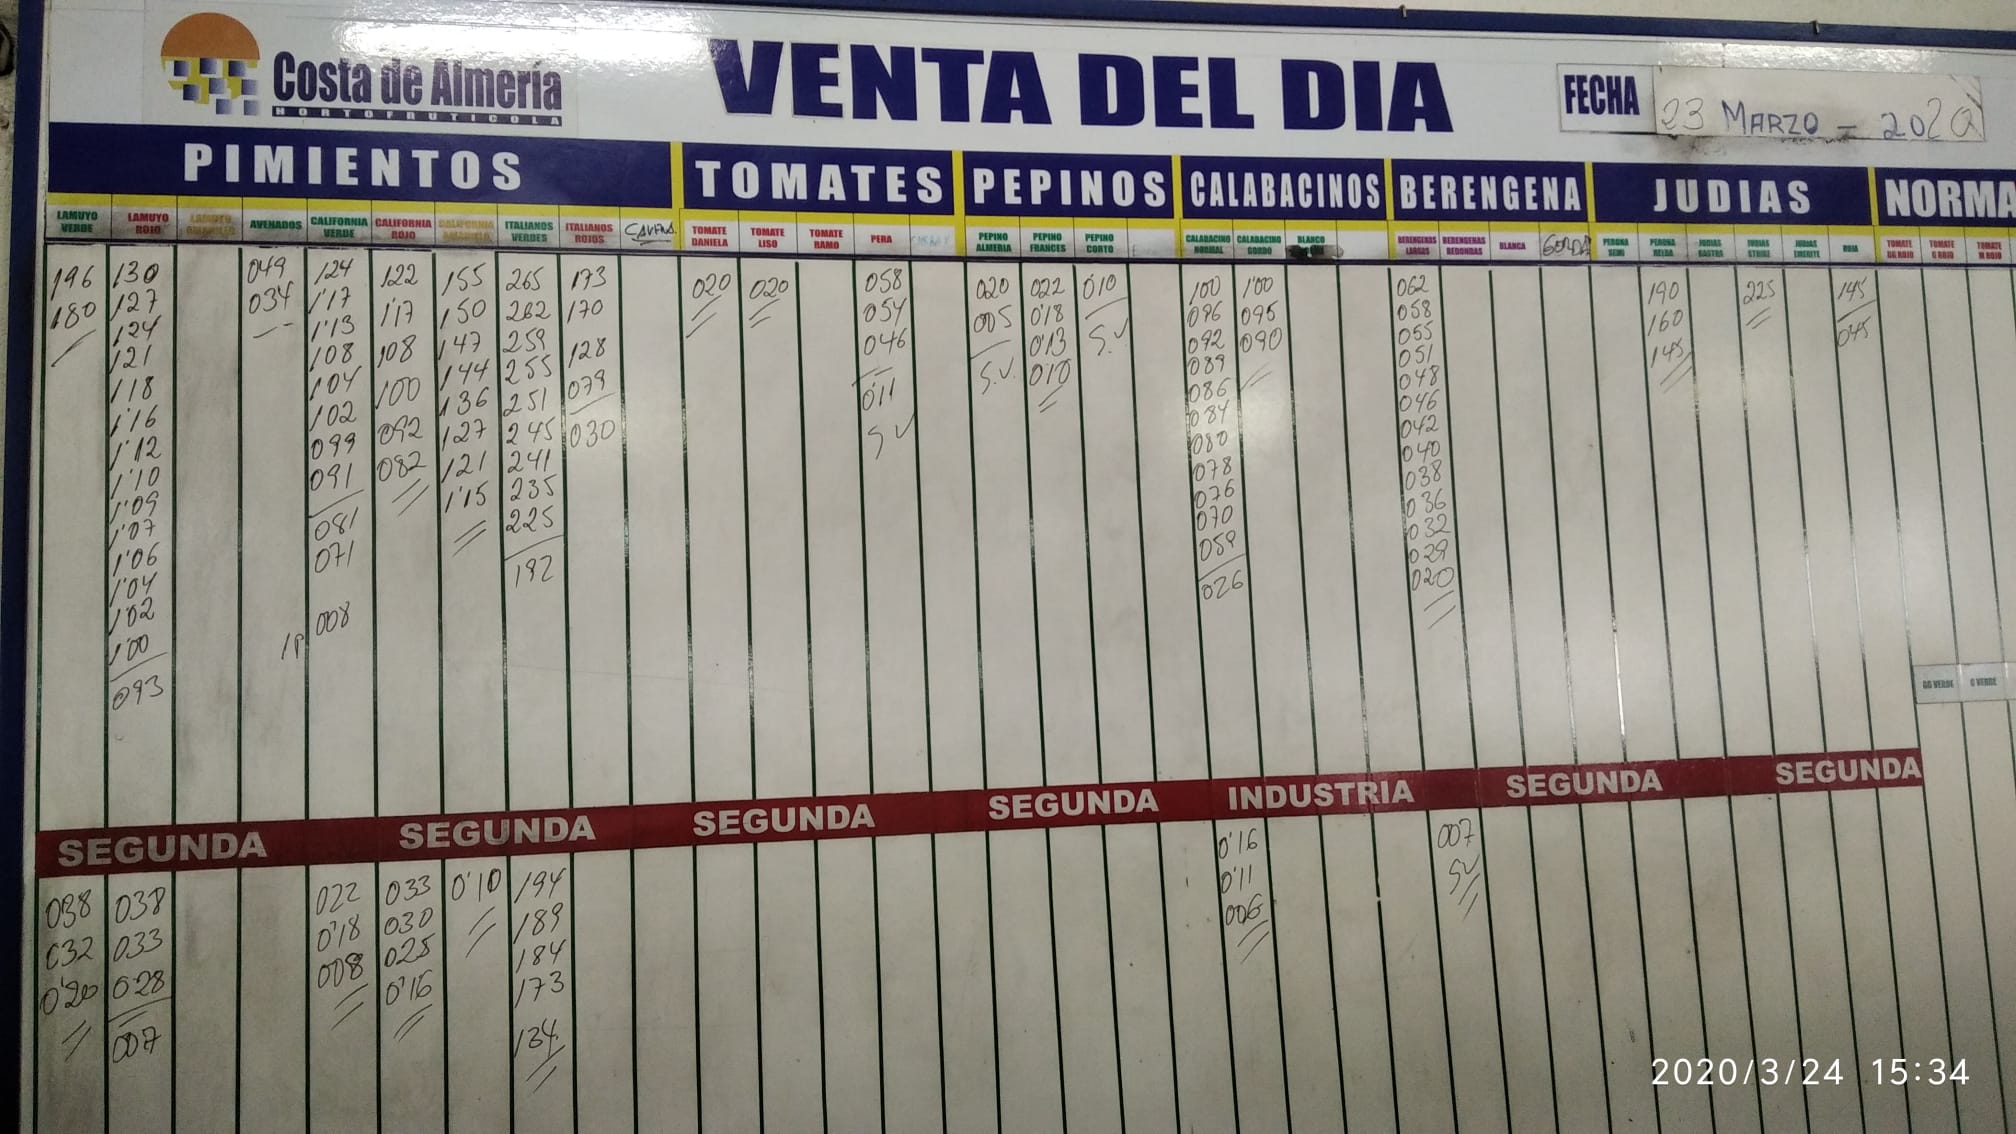 Costa de Almería
HORTOFRUTICOLA
VENTA DEL DIA
FECHA
23 MARZO - 2020
PIMIENTOS
TOMATES
PEPINOS
CALABACINOS
BERENGENA
JUDIAS
NORMA
LAMUYO VERDE
LAMUYO ROJO
LAMUYO AMARILLO
AVENADOS
CALIFORNIA VERDE
CALIFORNIA ROJO
CALIFORNIA AMARILLO
ITALIANOS VERDES
ITALIANOS ROJOS
TOMATE DANIELA
TOMATE LISO
TOMATE RAMO
PERA
PEPINO ALMERIA
PEPINO FRANCES
PEPINO CORTO
CALABACINO NORMAL
CALABACINO GORDO
BLANCO
BERENGENAS LARGAS
BERENGENAS REDONDAS
BLANCA
GORDA
PERONA SEMI
PERONA
JUDIAS
JUDIAS STRIKE
JUDIAS EMERITE
ROJA
TOMATE GG ROJO
TOMATE G ROJO
TOMATE M ROJO
196
180
130
127
124
121
118
1'16
1'12
1'10
1'09
1'07
1'06
1'04
1'02
1'00
093
049
034
124
1'17
1'13
108
104
102
099
091
081
071
008
122
117
108
100
092
082
155
150
147
144
136
127
121
1'15
265
262
259
255
251
245
241
235
225
192
173
170
128
079
030
020
020
058
054
046
0'11
S.V
020
005
S.V.
022
0'18
0'13
010
010
S.V
100
096
092
089
086
084
080
078
076
070
059
026
1'00
095
090
062
058
055
051
048
046
042
040
038
036
032
029
020
190
160
145
225
145
045
GG VERDE
G VERDE
SEGUNDA
SEGUNDA
SEGUNDA
SEGUNDA
INDUSTRIA
SEGUNDA
SEGUNDA
038
032
0'20
038
033
028
007
022
0'18
008
033
030
025
0'16
0'10
194
189
184
173
134
0'16
0'11
006
007
SV
2020/3/24 15:34